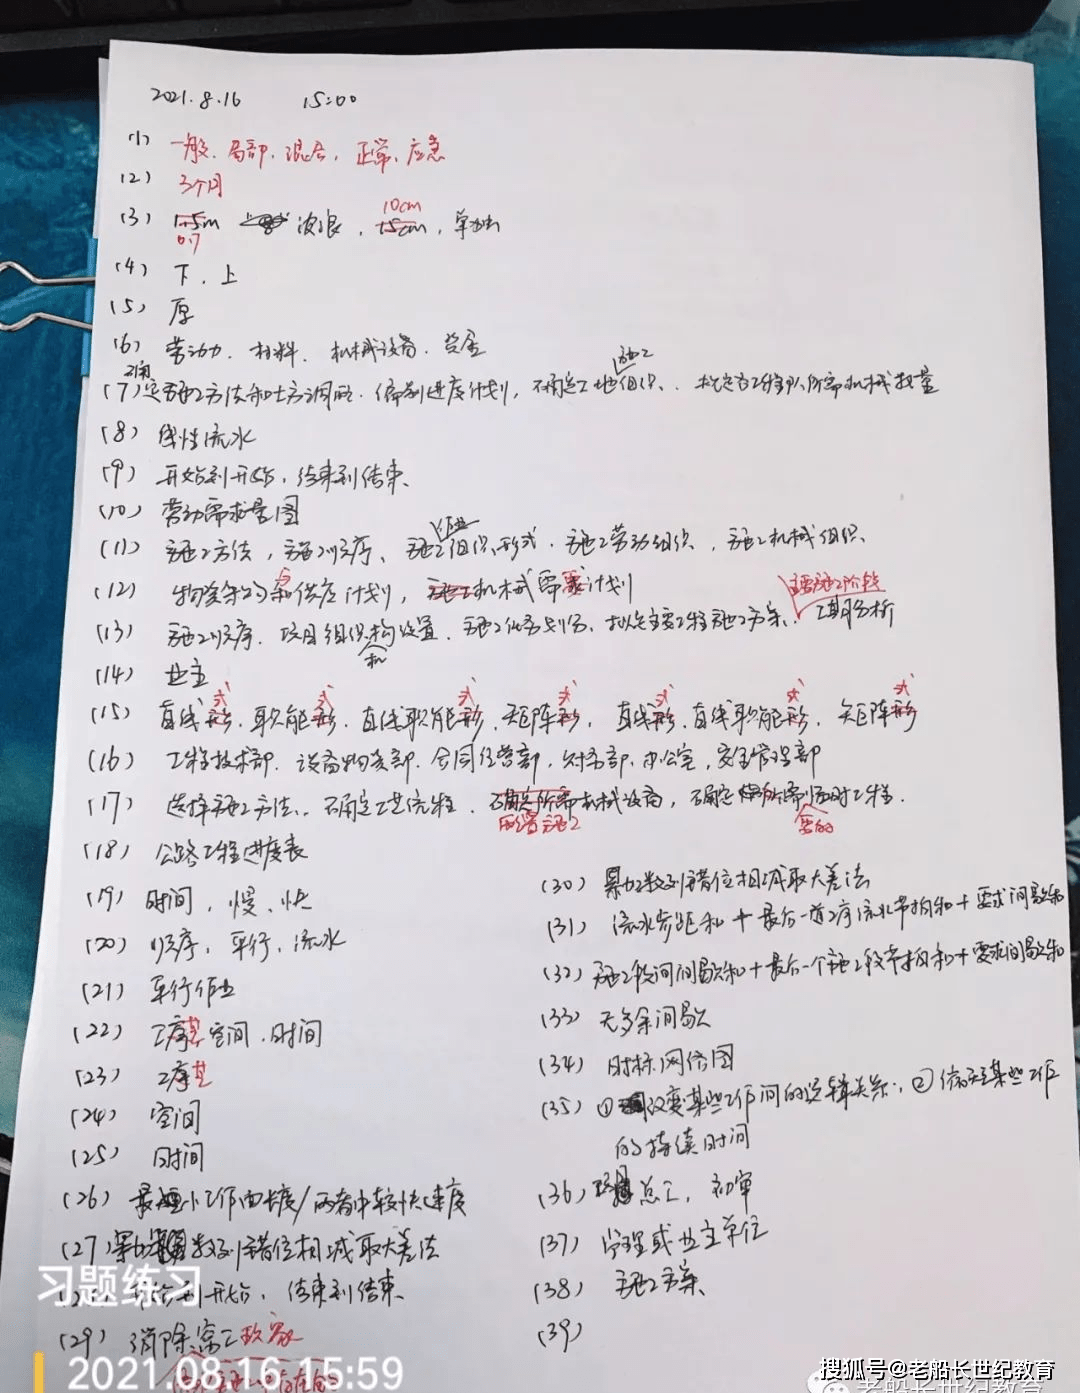 2021.8.16 15:00
(1) 一般、局部、混合、正常、应急
(2) 3个月
10cm
(3) 1.5m 波浪，15cm，单独
0.7
(4) 下、上
(5) 厚
(6) 劳动力、材料、机械设备、资金
施工
(7) 定施工方法和土方调配、编制进度计划，确定工地组织、拟定各工程队所需机械数量
(8) 线性流水
(9) 开始到开始，结束到结束
(10) 劳动需求量图
作业
(11) 施工方法，施工顺序、施工组织形式、施工劳动组织，施工机械组织、
(12) 物资采购和供应计划，施工机械需求计划
主要施工阶段
(13) 施工顺序、项目组织构设置、施工任务划分、拟定主要工程施工方案、工期分析
机
(14) 业主
式 式 式 式 式 式 式
(15) 直线形、职能形、直线职能形、矩阵形，直线形、直线职能形、矩阵形
(16) 工程技术部、设备物资部、合同经营部，财务部、办公室，安全管理部
(17) 选择施工方法、确定工艺流程、确定所需机械设备，确定所需临时工程.
配置施工 要的
(18) 公路工程进度表
(19) 时间，慢、快
(20) 顺序，平行，流水
(21) 平行作业
(22) 工序艺 空间、时间
(23) 工序艺
(24) 空间
(25) 时间
(26) 最小工作面长度/两者中较快速度
(27) 累加数列错位相减取大差法
(28) 开始到开始，结束到结束
(29) 消除窝工
(30) 累加数列错位相减取大差法
(31) 流水步距和+最后一道工序流水节拍和+要求间歇和
(32) 施工段间间歇和+最后一个施工段节拍和+要求间歇和
(33) 无多余间歇
(34) 时标网络图
(35) ①改变某些工作间的逻辑关系，②缩短某些工作
的持续时间
(36) 总工，初审
(37) 监理或业主单位
(38) 施工方案
(39)
习题练习
2021.08.16 15:59
搜狐号@老船长世纪教育
老船长世纪教育